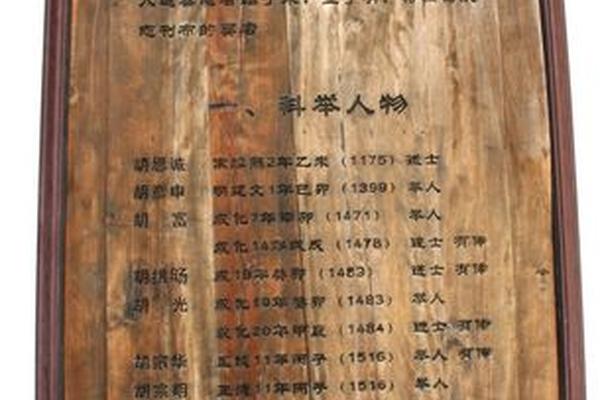 志刺布的要者
一、科举人物
胡思诚 宋淳熙2年乙未（1175）进士
胡彦申 明建文1年己卯（1399）举人
胡 富 成化7年辛卯（1471） 举人
成化14年戊戌（1478） 进士 有传
胡拱旸 成19年癸卯（1483） 进士 有传
胡 光 成化19年癸卯（1483） 举人
成化20年甲辰（1484） 进士 有传
胡宗华 正德11年丙子（1516） 举人 有传
胡宗明 正德11年丙子（1516） 举人